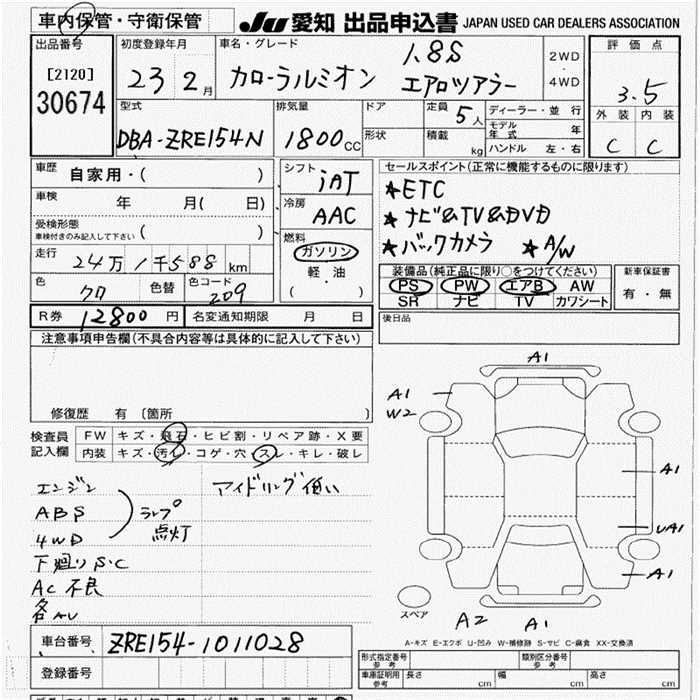 車内保管・守衛保管
JU 愛知 出品申込書 JAPAN USED CAR DEALERS ASSOCIATION
出品番号
[2120]
30674
初度登録年月
23 2月
車名・グレード
カローラルミオン
1.8S
エアロツアラー
2WD
・
4WD
評価点
3.5
外装 内装
C C
型式
DBA-ZRE154N
排気量
1800cc
ドア
形状
定員 5人
積載 kg
ディーラー・並行
モデル年式 年
ハンドル 左・右
車歴
自家用・( )
車検
年 月( 日)
受検形態
車検付きのみ記入して下さい ( )
走行
24万1千588km
色
クロ
色替
色コード
209
シフト
iAT
冷房
AAC
燃料
ガソリン
軽・油
( ・ )
セールスポイント(正常に機能するものに限ります)
★ETC
★ナビ&TV&DVD
★バックカメラ ★A/W
装備品(純正品に限り○をつけてください)
PS PW エアB AW
SR ナビ TV カワシート
新車保証書
有・無
R券 12800円
名変通知期限 月 日
後日品
注意事項申告欄(不具合内容等は具体的に記入して下さい)
修復歴 有〔箇所 〕
検査員
記入欄
FW キズ・飛石・ヒビ割・リペア跡・X要
内装 キズ・汚れ・コゲ・穴・スレ・キレ・破レ
エンジン
ABS
4WD
ランプ
点灯
アイドリング低い
下廻りS・C
AC不良
各AU
A1
A1
W2
A1
UA1
A1
A2
A1
スペア
A-キズ E-エクボ U-凹み W-補修跡 S-サビ C-腐食 XX-交換済
車台番号 ZRE154-1011028
登録番号
形式指定番号
参考
類別区分番号
参考
車庫証明用
参考
長さ cm
幅 cm
高さ cm